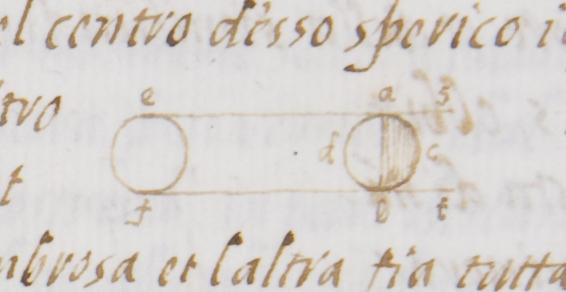 el centro d'esso sperico i
tro
e a s
d c
t
f b t
mbrosa et l'altra fia tutta